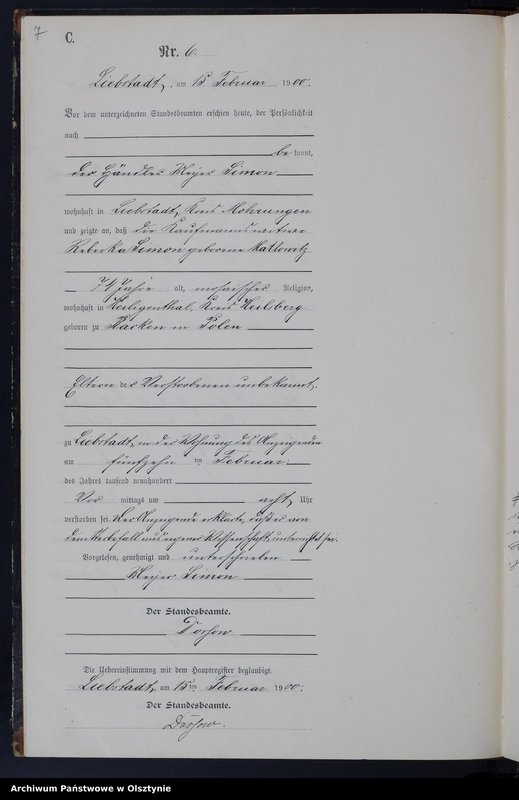 7
C.
Nr. 6.
Liebstadt, am 15 Februar 1900.
Vor dem unterzeichneten Standesbeamten erschien heute, der Persönlichkeit
nach
be kannt,
der Händler Meyer Simon
wohnhaft in Liebstadt, Kreis Mohrungen
und zeigte an, daß die Kaufmannswitwe
Rebecka Simon geborene
74 Jahre alt, mosaischer Religion,
wohnhaft in Heiligenthal, Kreis Heilsberg
geboren zu in Polen
Eltern der Verstorbenen unbekannt.
zu Liebstadt, in der Wohnung des Anzeigenden
am fünfzehn ten Februar
des Jahres tausend neunhundert
Vor mittags um acht Uhr
verstorben sei. Der Anzeigende erklärte, daß er von
dem Sterbefall aus eigener Wissenschaft unterrichtet sei.
Vorgelesen, genehmigt und unterschrieben
Meyer Simon
Der Standesbeamte.
Die Uebereinstimmung mit dem Hauptregister beglaubigt.
Liebstadt, am 15ten Februar 1900.
Der Standesbeamte.
Archiwum Państwowe w Olsztynie